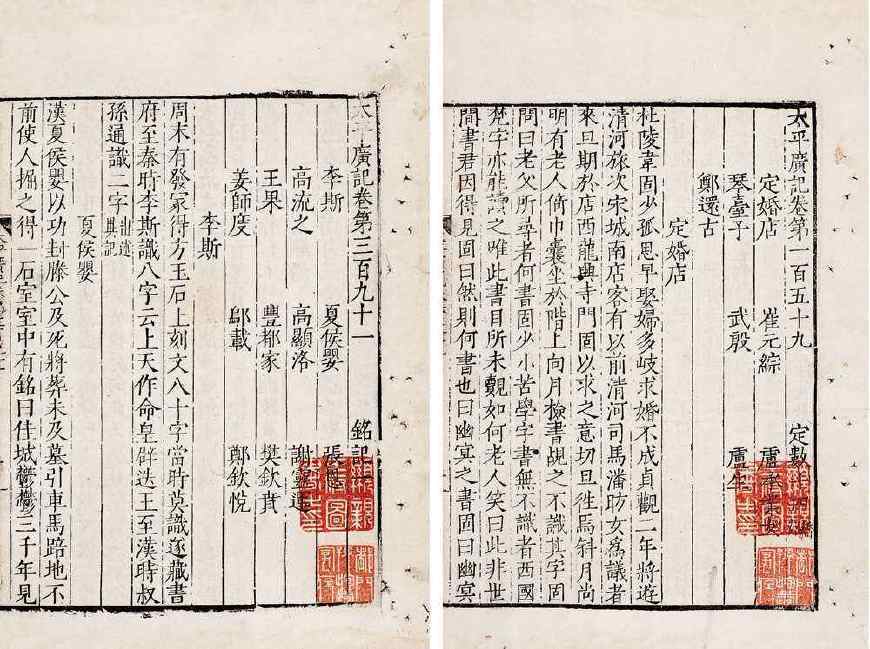 太平廣記卷第一百五十九 定數
定婚店 崔元綜 盧承業女
琴臺子 武殷 盧生
鄭還古
定婚店
杜陵韋固少孤思早娶婦多岐求婚不成貞觀二年將遊
清河旅次宋城南店客有以前清河司馬潘昉女爲議者
來旦期於店西龍興寺門固以求之意切旦徃焉斜月尚
明有老人倚巾囊坐於階上向月檢書覘之不識其字固
問曰老父所尋者何書固少小苦學字書無不識者西國
梵字亦能讀之唯此書目所未覿如何老人笑曰此非世
間書君因得見固曰然則何書也曰幽冥之書固曰幽冥
太平廣記卷第三百九十一 銘記
李斯 夏侯嬰 張恩
高流之 高顯洛 謝靈運
王果 豐都冢 樊欽賁
姜師度 鄔載 鄭欽悅
李斯
周末有發冢得方玉石上刻文八十字當時莫識遂藏書
府至秦時李斯識八字云上天作命皇辟迭王至漢時叔
孫通識二字 出述異記
夏侯嬰
漢夏侯嬰以功封滕公及死將葬未及墓引車馬路地不
前使人掘之得一石室室中有銘曰佳城鬱鬱三千年見